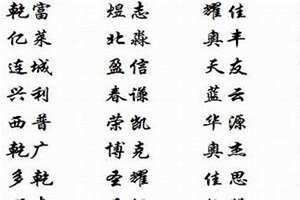 乾富 煜志 耀佳
亿莱 北淼 奥丰
连城 盈信 天友
兴利 春谦 蓝云
西普 荣凯 华源
乾广 博克 奥杰
多乾 圣耀 佳思